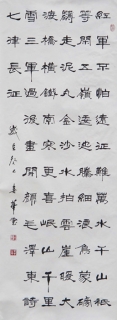 紅軍不怕遠征難萬水千山祗
等閒五嶺逶迤騰細浪烏蒙磅
礴走泥丸金沙水拍雲崖暖大
渡橋橫鐵索寒更喜岷山千里
雪三軍過後盡開顏毛澤東詩
七律長征